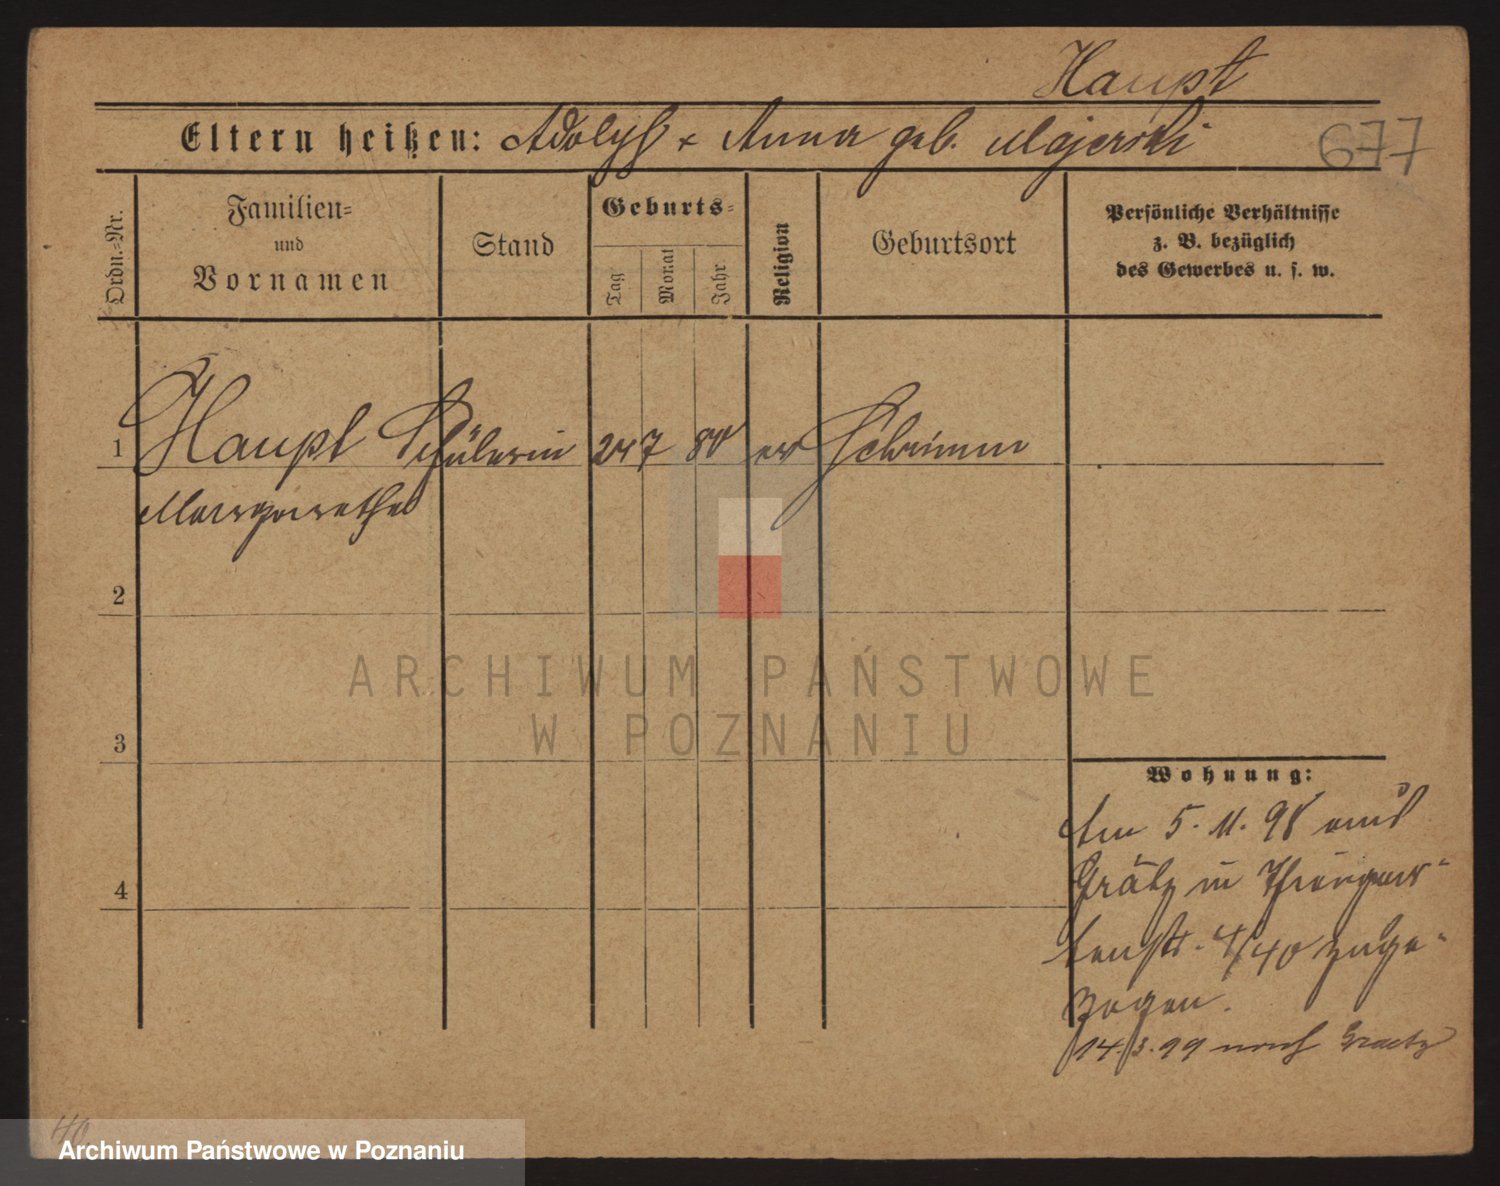 Haupt
Eltern heißen: Adolph & Anna geb. Majerski
677
Ordn.=Nr.
Familien=
und
Vornamen
Stand
Geburts=
Tag
Monat
Jahr
Religion
Geburtsort
Persönliche Verhältnisse
z. B. bezüglich
des Gewerbes u. s. w.
1 Haupt Schülerin 24 7 80 ev Schrimm
Margarethe
2
3
4
Wohnung:
Am 5. 11. 98 aus
Grätz in Thiergar-
tenstr. 4/40 zuge-
zogen.
14. 3. 99 nach Graetz
ARCHIWUM PAŃSTWOWE
W POZNANIU
Archiwum Państwowe w Poznaniu